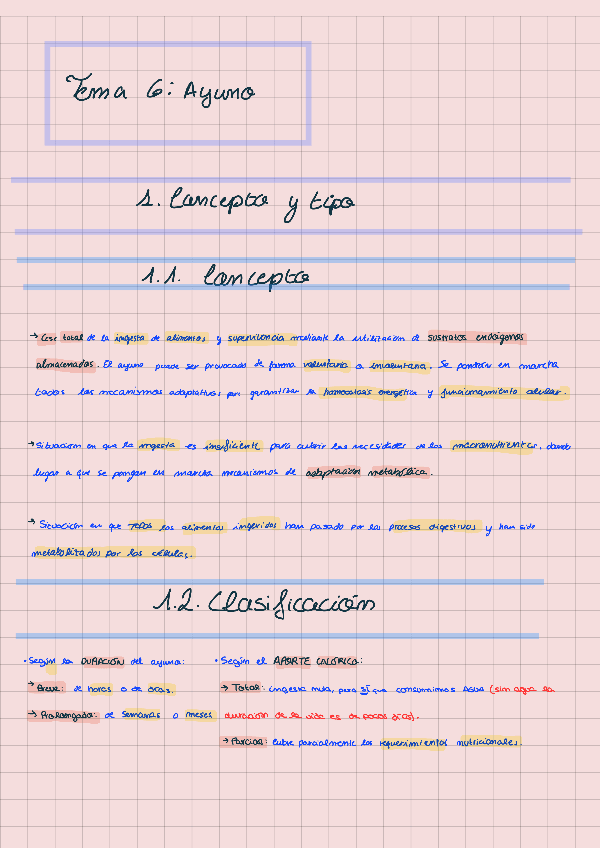 Tema 6: Ayuno
1. Concepto y tipo
1.1. Concepto
→ Cese total de la ingesta de alimentos y supervivencia mediante la utilización de sustratos endógenos
almacenados. El ayuno puede ser provocado de forma voluntaria o involuntaria. Se pondrán en marcha
todos los mecanismos adaptativos para garantizar la homeostasis energética y funcionamiento celular.
→ Situación en que la ingesta es insuficiente para cubrir las necesidades de los macronutrientes, dando
lugar a que se pongan en marcha mecanismos de adaptación metabólica.
→ Situación en que TODOS los alimentos ingeridos han pasado por los procesos digestivos y han sido
metabolizados por las células.
1.2. Clasificación
• Según la DURACIÓN del ayuno:
→ Breve: de horas o de días.
→ Prolongado: de semanas o meses
• Según el APORTE CALÓRICO:
→ Total: ingesta nula, pero SÍ que consumimos AGUA (sin agua la
duración de la vida es de pocos días).
→ Parcial: cubre parcialmente los requerimientos nutricionales.